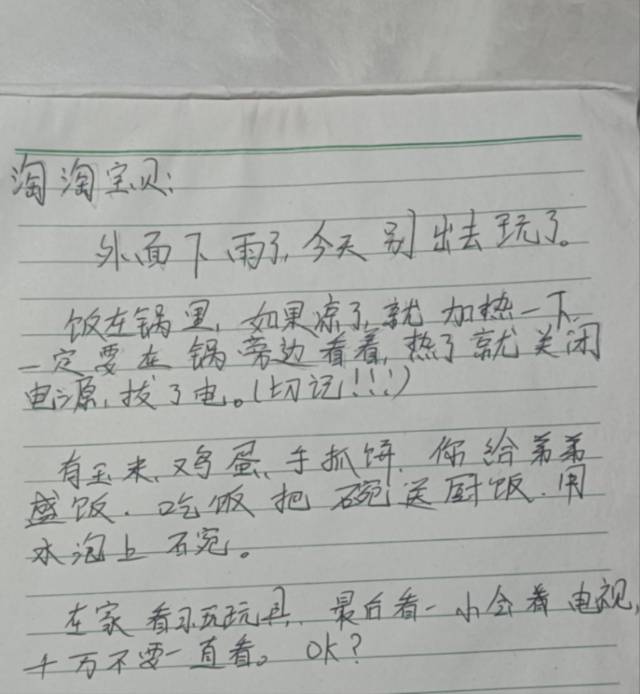 淘淘宝贝:
外面下雨了,今天别出去玩了。
饭在锅里,如果凉了,就加热一下,
一定要在锅旁边看着,热了就关闭
电源,拔了电。(切记!!!)
有玉米、鸡蛋、手抓饼.你给弟弟
盛饭.吃饭把碗送厨饭.用
水泡上碗。
在家看书玩玩具,最后看一小会着电视,
千万不要一直看。OK?